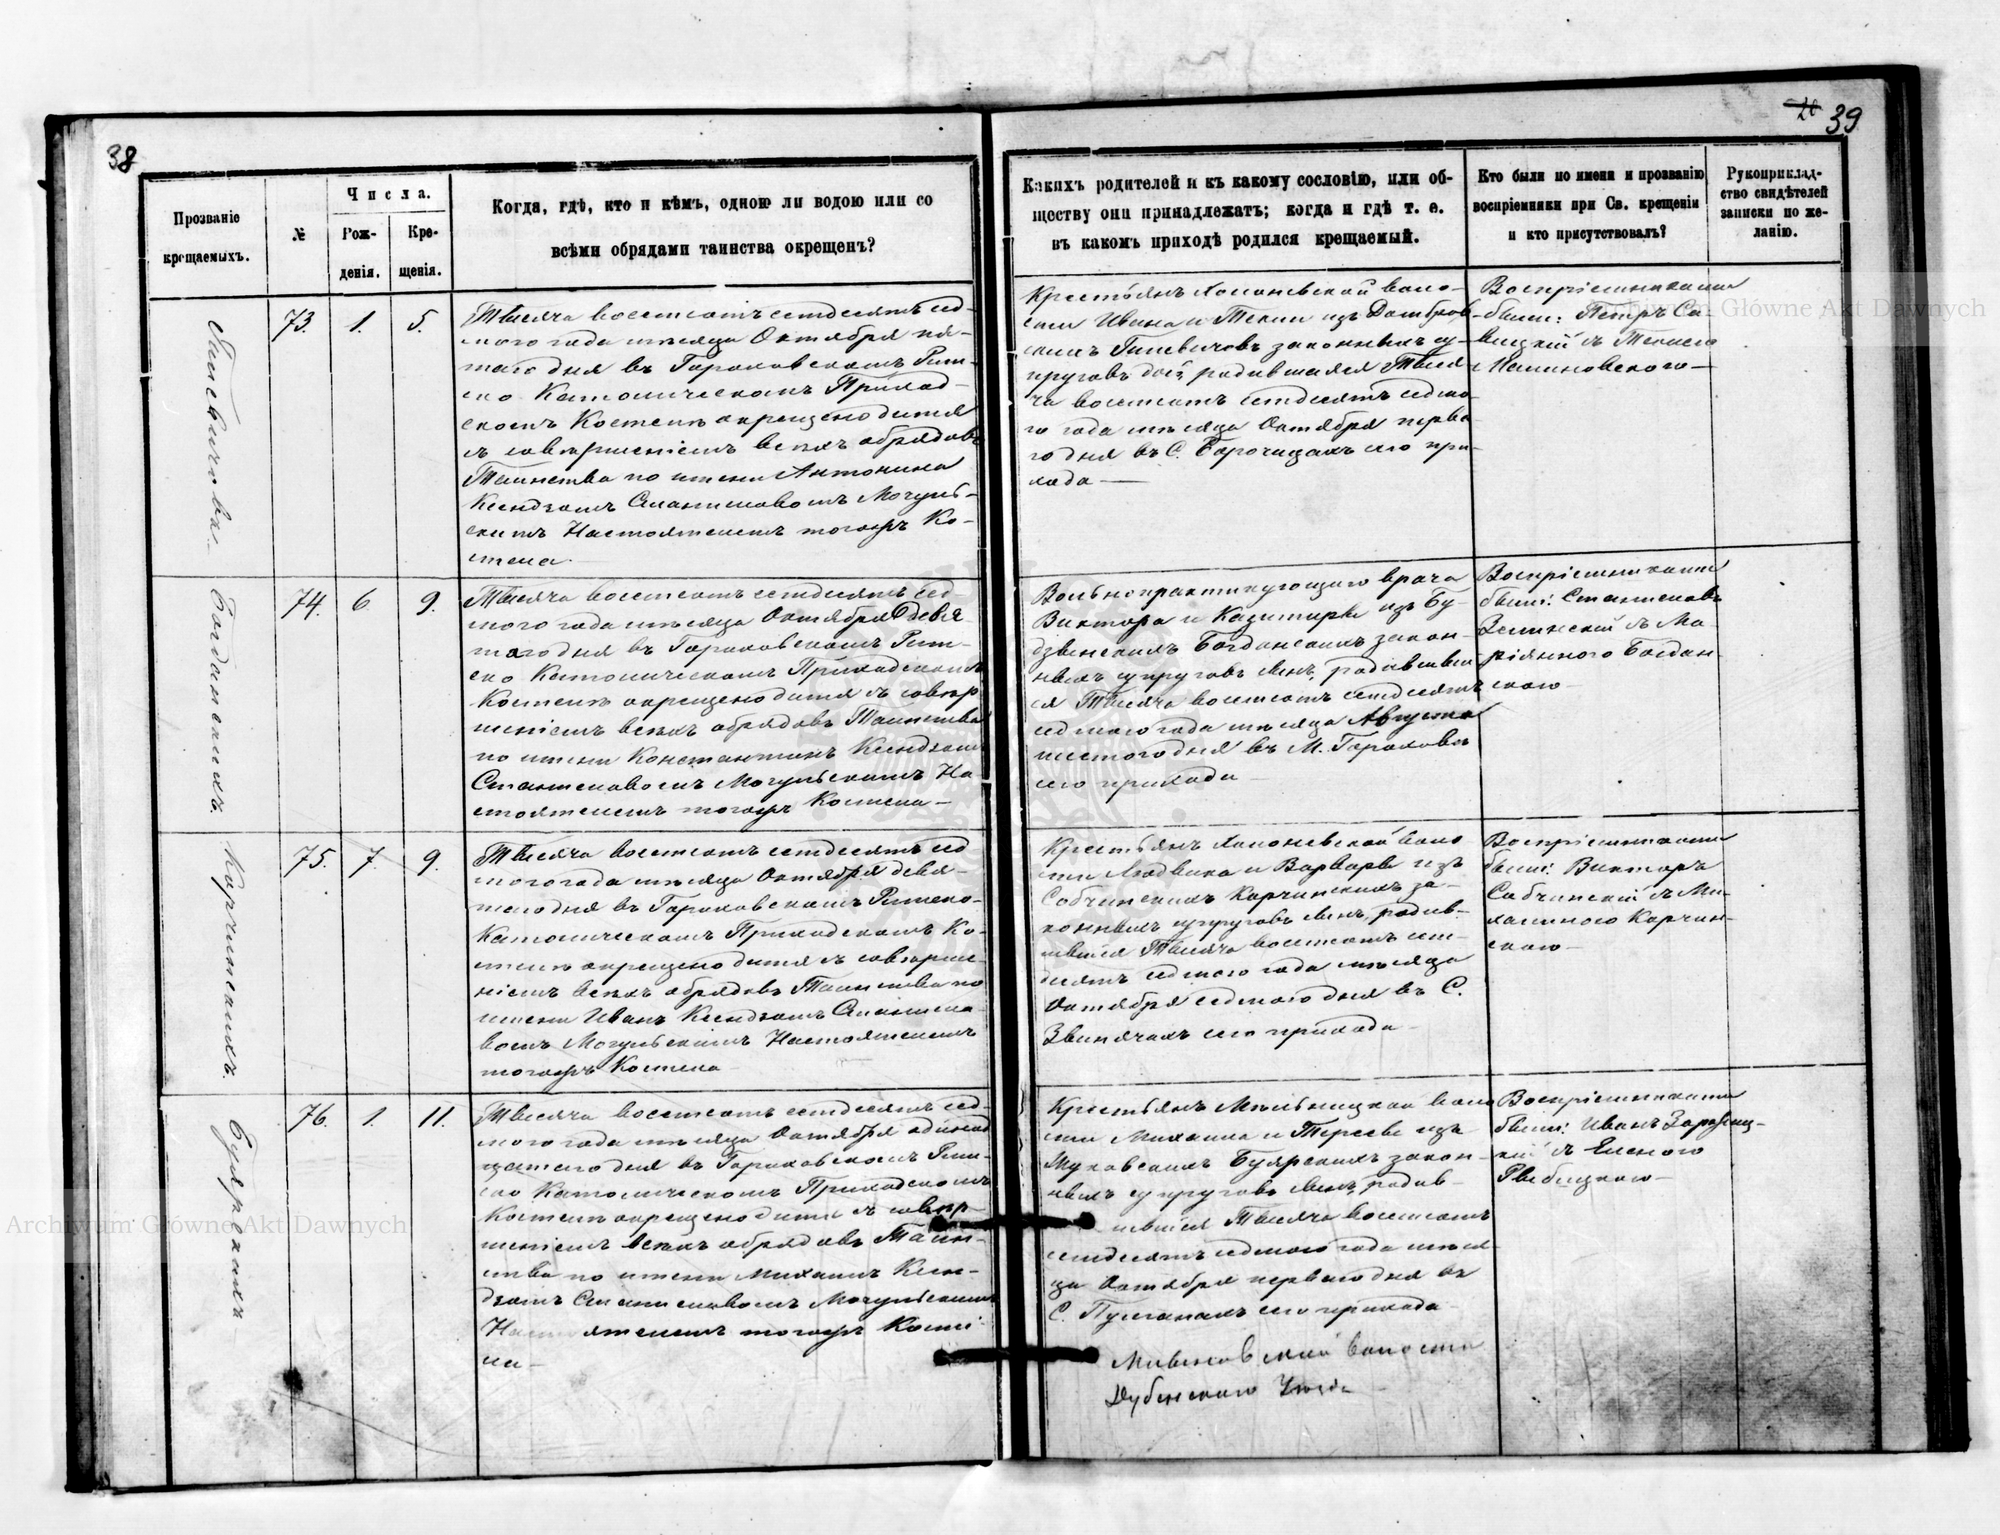 38
Прозваніе
крещаемыхъ.
№
Числа.
Рож-
денія.
Кре-
щенія.
Когда, гдѣ, кто и кѣмъ, одною ли водою или со
всѣми обрядами таинства окрещенъ?
73.
1.
5.
Тысяча восемсотъ семдесятъ сед-
мого года мѣсяца Октября пя-
таго дня въ Гороховскомъ Рим-
ско Католическомъ Приход-
скомъ Костелѣ окрещено дитя
съ совершеніемъ всѣхъ обрядовъ
Таинства по имени Антонина
Ксендзомъ Станиславомъ Могуль-
скимъ Настоятелемъ тогожъ Ко-
стела
Богданскихъ
74.
6
9.
Тысяча восемсотъ семдесятъ сед-
мого года мѣсяца Октября девя-
таго дня въ Гороховскомъ Рим-
ско Католическомъ Приходскомъ
Костелѣ окрещено дитя съ совер-
шеніемъ всѣхъ обрядовъ Таинства
по имени Константинъ Ксендзомъ
Станиславомъ Могульскимъ На-
стоятелемъ тогожъ Костела
Карчинскихъ.
75.
7.
9.
Тысяча восемсотъ семдесятъ сед
мого года мѣсяца Октября девя-
таго дня въ Гороховскомъ Римско-
Католическомъ Приходскомъ Ко-
стелѣ окрещено дитя съ соверше-
ніемъ всѣхъ обрядовъ Таинства по
имени Иванъ Ксендзомъ Станисла-
вомъ Могульскимъ Настоятелемъ
тогожъ Костела
Буярскихъ
76.
1.
11.
Тысяча восемсотъ семдесятъ сед-
мого года мѣсяца Октября одинад
цатаго дня въ Гороховскомъ Рим-
ско Католическомъ Приходскомъ
Костелѣ окрещено дитя съ совер-
шеніемъ всѣхъ обрядовъ Таин-
ства по имени Михаилъ Ксен-
дзомъ Станиславомъ Могульскимъ
Настоятелемъ тогожъ Косте-
ла
39
Какихъ родителей и къ какому сословію, или об-
ществу они принадлежатъ; когда и гдѣ т. е.
въ какомъ приходѣ родился крещаемый.
Кто были по имени и прозванію
воспріемники при Св. крещеніи
и кто присутствовалъ?
Рукоприклад-
ство свидѣтелей
записки по же-
ланію.
Крестьянъ воло-
сти Ивана и Теклии изъ Домбров-
скихъ законныхъ су-
пруговъ дочь родившаяся Тыся-
ча восемсотъ семдесятъ седмо-
го года мѣсяца Октября перва-
го дня въ С. сего при-
хода
Воспріемниками
были: Петръ Са-
вицкій съ Теклею
Малиновскою
Вольнопрактикующаго врача
Виктора и Казимиры изъ Бу-
дзвенскихъ Богданскихъ закон-
ныхъ супруговъ сынъ, родившій
ся Тысяча восемсотъ семдесятъ
седмого года мѣсяца Августа
шестого дня въ М. Гороховѣ
сего прихода
Воспріемниками
были: Станиславъ
Зелинскій съ Ма-
ріянною Богдан-
скою
Крестьянъ воло
сти Людвика и Варвары изъ
Собчинскихъ Карчинскихъ за-
конныхъ супруговъ сынъ, родив-
шійся Тысяча восемсотъ сем-
десятъ седмого года мѣсяца
Октября седмого дня въ С.
Звинячахъ сего прихода
Воспріемниками
были: Викторъ
Собчинскій съ Ми-
халиною Карчин-
скою
Крестьянъ воло
сти Михаила и Терезы изъ
Муховскихъ Буярскихъ закон-
ныхъ супруговъ сынъ, родив-
шійся Тысяча восемсотъ
семдесятъ седмого года мѣся-
ца Октября перваго дня въ
С. Пулганахъ сего прихода
волости
Дубенскаго Уѣзда
Воспріемниками
были: Иванъ
кій съ Еленою
Рыбицкою
Archiwum Główne Akt Dawnych
Archiwum Główne Akt Dawnych